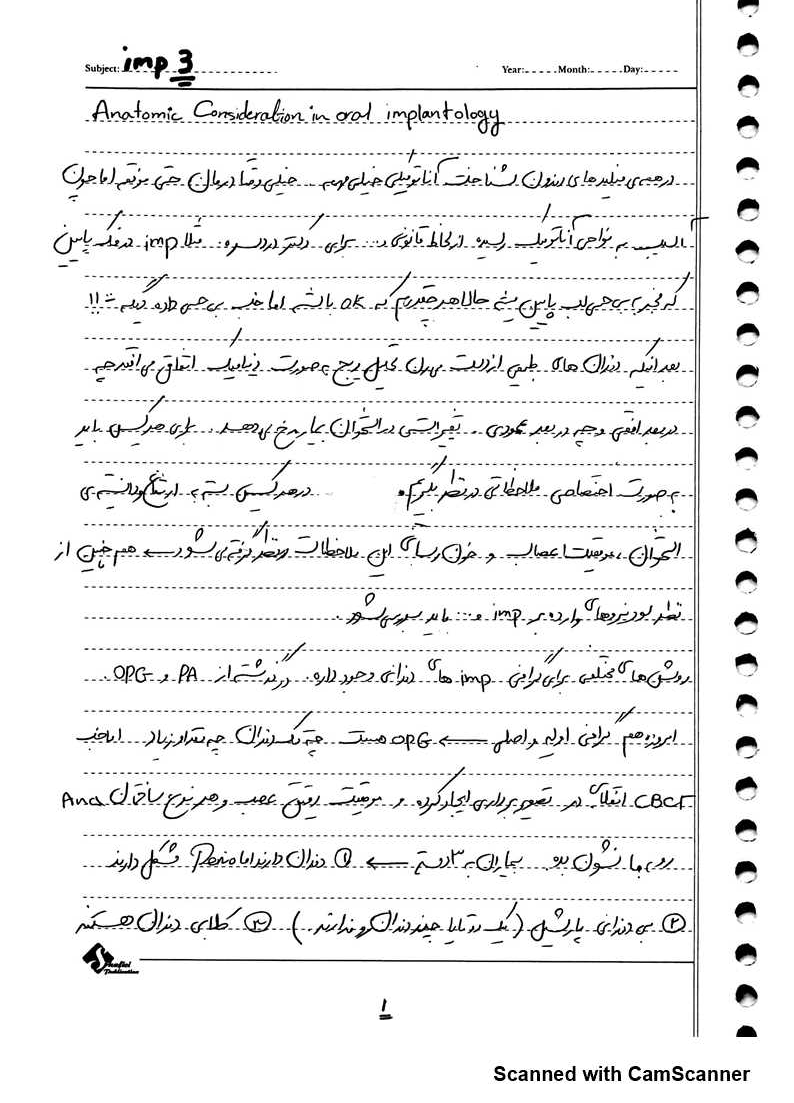 Subject: imp 3 Year: Month: Day:
Anatomic Consideration in oral implantology
در همه ی فیلدهای دندون شناخت آناتومیکی خیلی مهمه ... خیلی وقتا درمان حتی موفقه اما چون
آسیب به نواحی آناتومیک رسیده از لحاظ قانونی و... برای دکتر دردسره. مثلا imp در فک پایین
که منجر به بی حسی لب پایین بشه حالا هر چقدرم که ok باشه اما خب بی حسی داده دیگه !!
بعد از اینکه دندان های طبیعی از دست میرن تحلیل ریج به صورت دینامیک اتفاق می افتد چه
در بعد افقی و چه در بعد عمودی. تغییراتی در استخوان بیمار رخ می دهد. برای هر کیس باید
به صورت اختصاصی ملاحظاتی در نظر بگیریم. در هر کیس بسته به ارتفاع و دانسیته ی
استخوان، موقعیت اعصاب و خون رسانی این ملاحظات در نظر گرفته می شود ← همچنین از
نظر لود نیروهای وارده بر imp و... باید بررسی شود.
روش های مختلفی برای گرافی imp های دندانی وجود داره. در گذشته از PA و OPG.
امروزه هم گرافی اولیه و اصلی ← OPG هست چه تک دندان چه تعداد زیاد. اما خب
CBCT انقلابی در تصویر برداری ایجاد کرده و موقعیت دقیق عصب و هر نوع ساختمان Ana
رو به ما نشون بده. بیماران به ۳ دسته ← ① دندان دارند اما Perio مشکل دارند
② بی دندانی پارشیل (یک دو تا یا چند دندان رو ندارند) ③ کلا بی دندان هستند
۱
Scanned with CamScanner